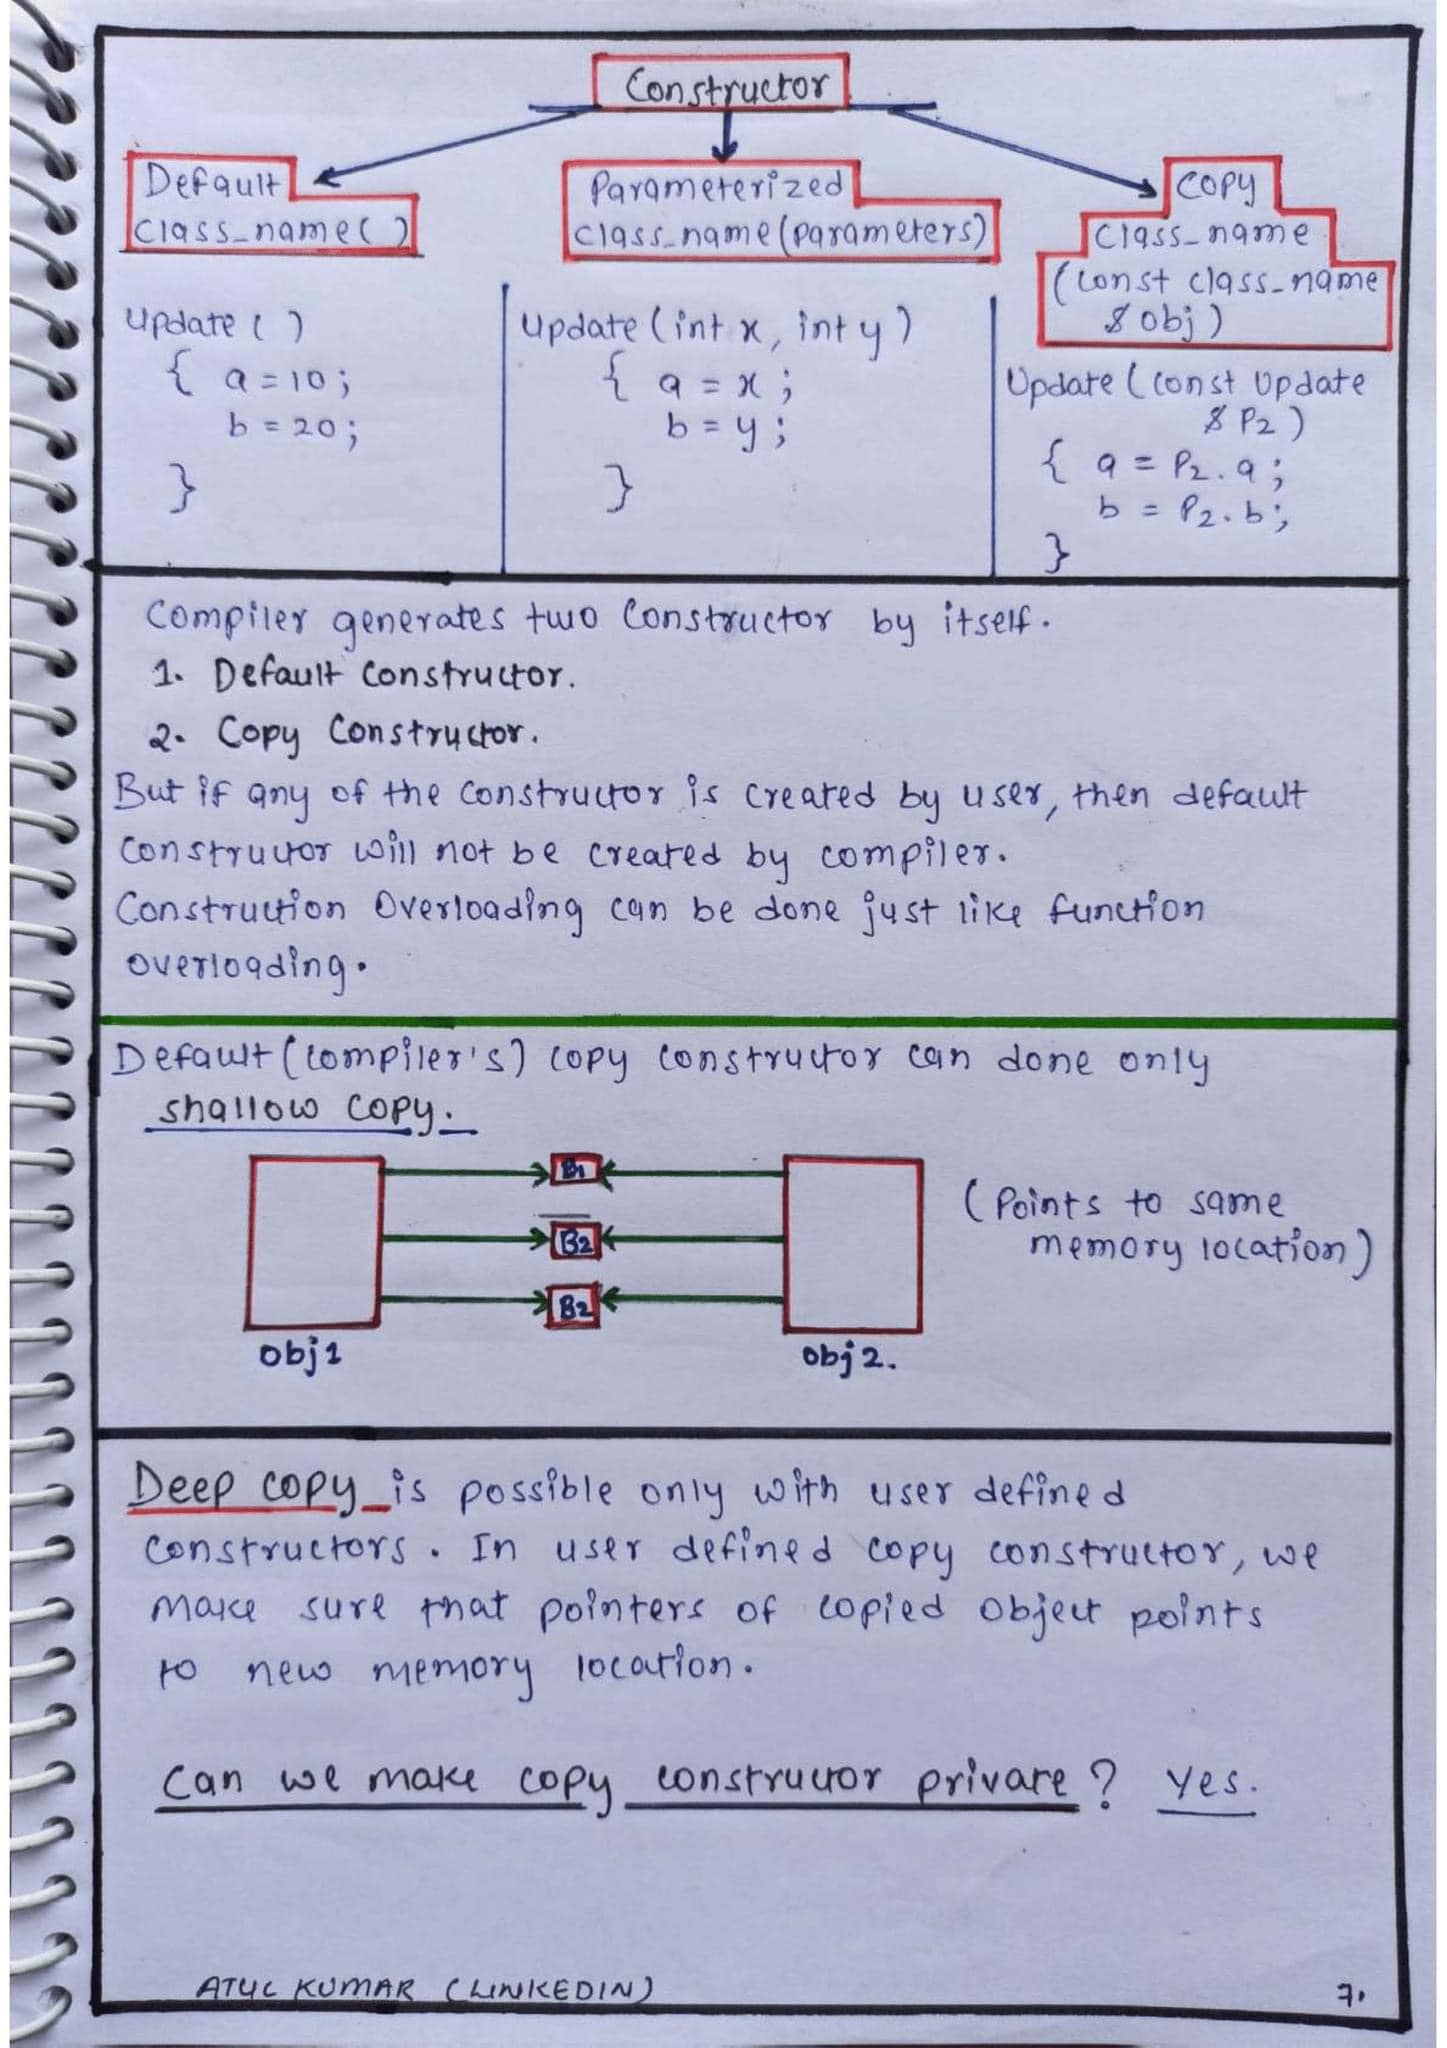 Constructor
Default
class_name( )
Parameterized
class_name(parameters)
copy
class_name
(const class_name
& obj)
update ( )
{ a = 10;
b = 20;
}
update (int x, int y)
{ a = x;
b = y;
}
Update (const Update
& P2)
{ a = P2.a;
b = P2.b;
}
Compiler generates two Constructor by itself.
1. Default Constructor.
2. Copy Constructor.
But if any of the constructor is created by user, then default
constructor will not be created by compiler.
Construction Overloading can be done just like function
overloading.
Default (compiler's) copy constructor can done only
shallow copy.
B1
B2
B2
Obj1
Obj2.
(Points to same
memory location)
Deep copy is possible only with user defined
constructors. In user defined copy constructor, we
make sure that pointers of copied object points
to new memory location.
Can we make copy constructor private? Yes.
ATUL KUMAR (LINKEDIN)
7.